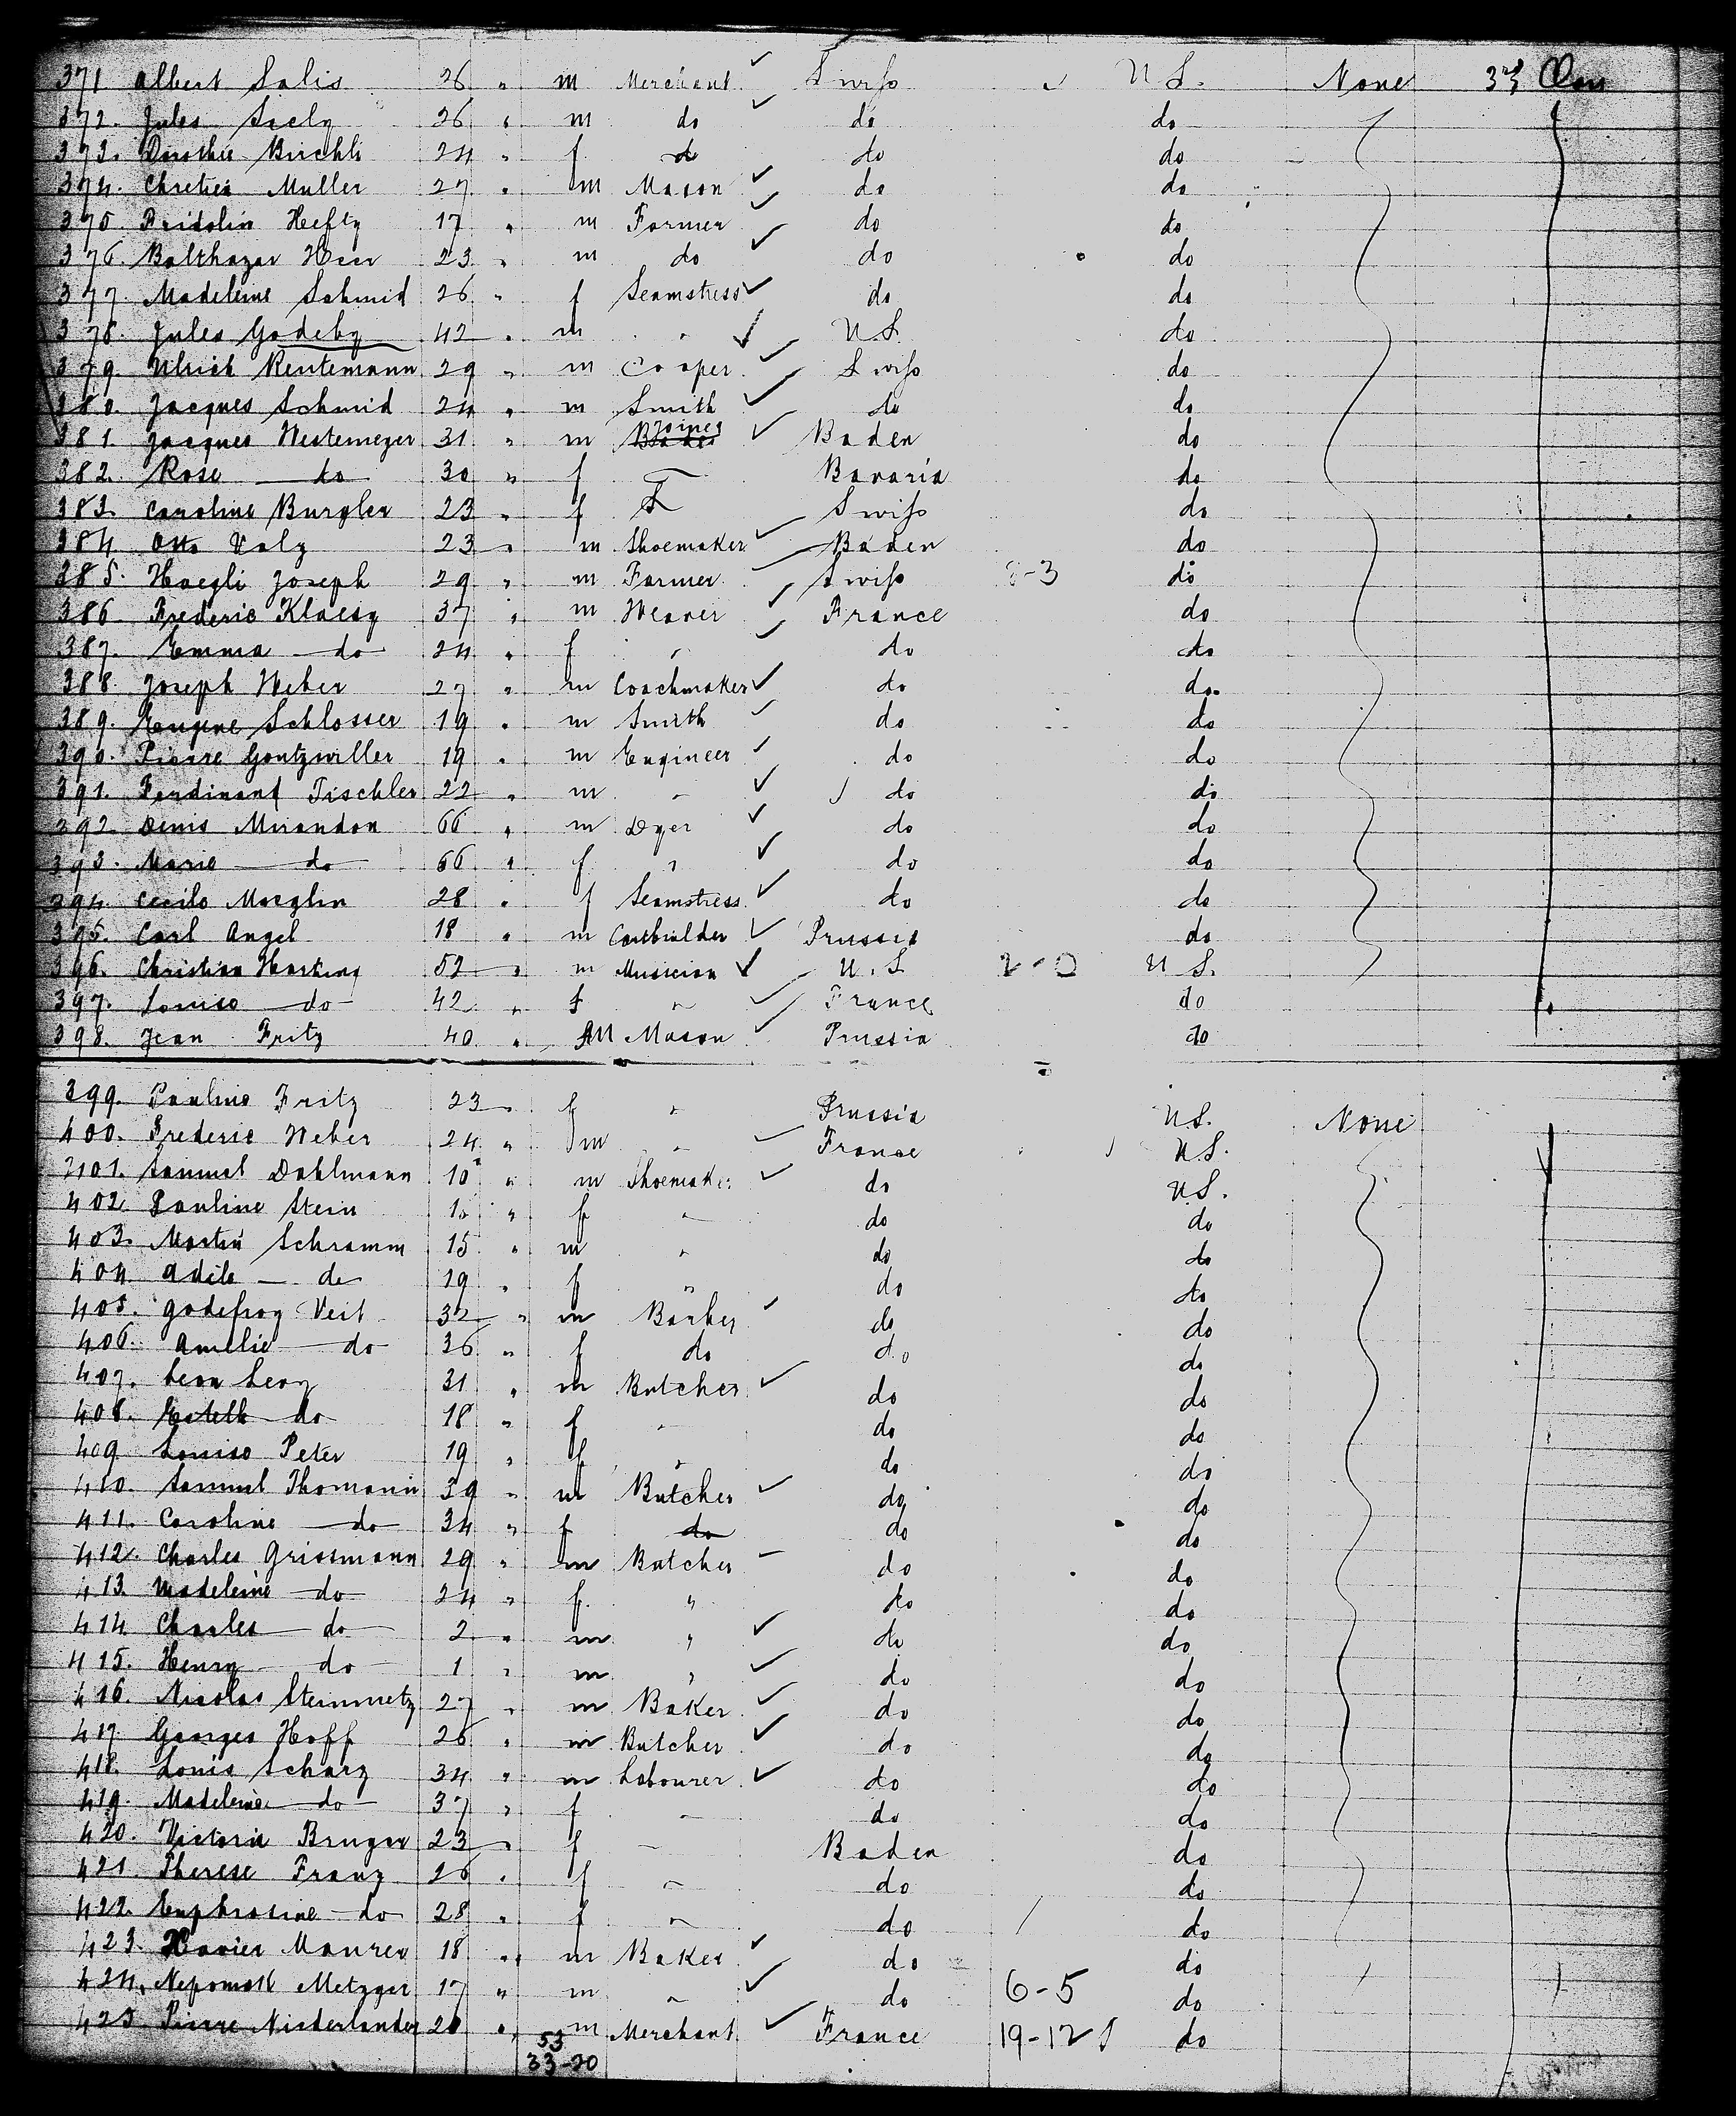 371 Albert Salis 26 " m Merchant Swiss U S. None 3rd
372. Jules 26 " m do do do
373. Dorothee Birchli 24 " f do do do
374. Chretien Muller 27 " m Mason do do
375. Fridolin Hefty 17 " m Farmer do do
376. Balthazar Heer 23 " m do do do
377. Madeleine Schmid 26 " f Seamstress do do
378. Jules Godeby 42 " m " U.S. do
379. Ulrich Rentemann 29 " m Cooper Swiss do
380. Jacques Schmid 24 " m Smith do do
381. Jacques Westemeyer 31 " m Joiner Baden do
382. Rose do 30 " f Bavaria do
383. Caroline Burgler 23 " f Swiss do
384. Otto Volz 23 " m Shoemaker Baden do
385. Haegli Joseph 29 " m Farmer Swiss 8-3 do
386. Frederic Klaesy 37 " m Weaver France do
387. Emma do 24 " f " do do
388. Joseph Weber 27 " m Coachmaker do do
389. Eugene Schlosser 19 " m Smith do do
390. Pierre Gontzwiller 19 " m Engineer do do
391. Ferdinand Tischler 22 " m " do do
392. Denis Mirandon 66 " m Dyer do do
393. Marie do 66 " f " do do
394. Cecile Moeglin 28 " f Seamstress do do
395. Carl Angel 18 " m Cartbuilder Prussia do
396. Christian Hartung 52 " m Musician U.S. 2-0 U S.
397. Louise do 42 " f " France do
398. Jean Fritz 40 " M Mason Prussia do
399. Pauline Fritz 23 " f " Prussia U.S. None
400. Frederic Weber 24 " m " France U.S.
401. Samuel Dahlmann 10 " m Shoemaker do U.S.
402. Pauline Stein " f " do do
403. Martin Schramm 15 " m " do do
404. Adele do 19 " f " do do
405. Godefroy Veit 32 " m Barber do do
406. Amelie do 36 " f do do do
407. Leon Levy 31 " m Butcher do do
408. Estelle do 18 " f " do do
409. Louise Peter 19 " f " do do
410. Samuel Thomann 39 " m Butcher do do
411. Caroline do 34 " f do do do
412. Charles Grissmann 29 " m Butcher do do
413. Madeleine do 24 " f " do do
414. Charles do 2 " m " do do
415. Henry do 1 " m " do do
416. Nicolas Steinmetz 27 " m Baker do do
417. Georges Hoff 26 " m Butcher do do
418. Louis Scharz 34 " m Labourer do do
419. Madeleine do 37 " f " do do
420. Victoria Bruger 23 " f " Baden do
421. Therese Franz 26 " f " do do
422. Euphrosine do 28 " f " do do
423. Xavier Maurer 18 " m Baker do do
424. Nepomuk Metzger 17 " m " do 6-5 do
425. Pierre Niederlander 20 " m Merchant France 19-12 do
53
33-20